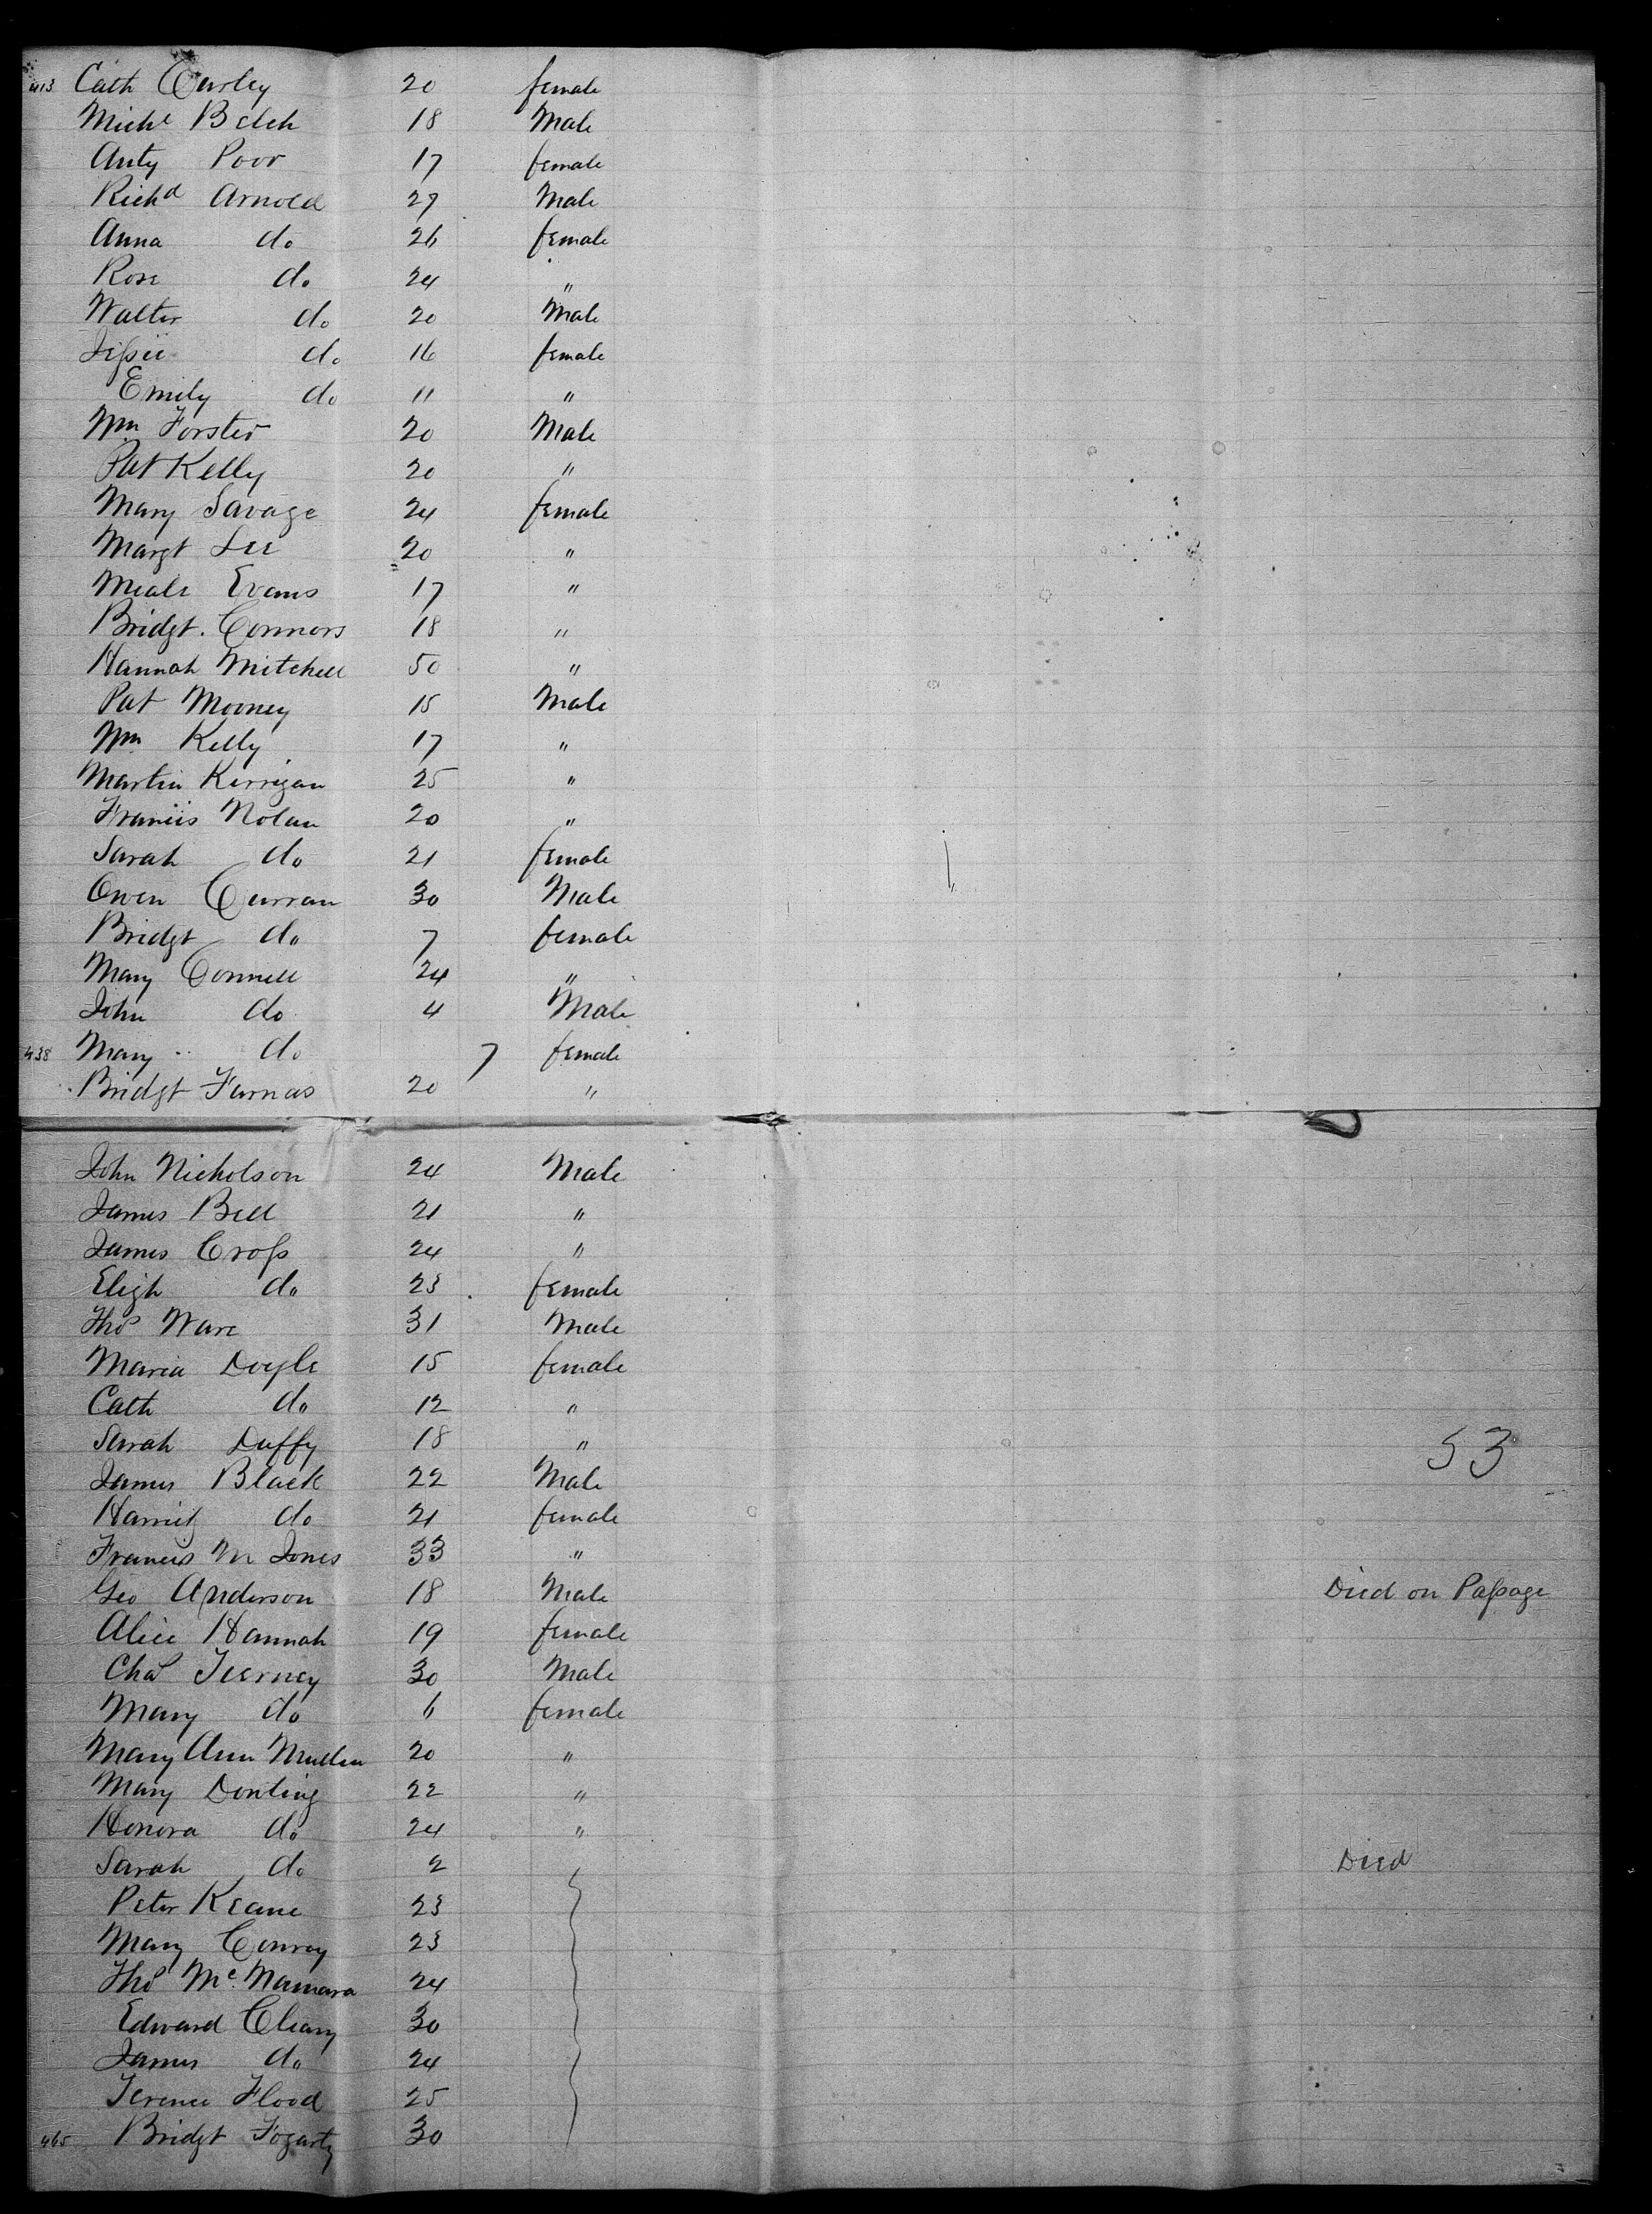 413 Cath Curley 20 female
Michl Belch 18 Male
Anty Poor 17 female
Richd Arnold 29 Male
Anna do 26 female
Rose do 24 "
Walter do 20 Male
Jessie do 16 female
Emily do 11 "
Wm Forster 20 Male
Pat Kelly 20 "
Mary Savage 24 female
Margt Lee 20 "
Evans 17 "
Bridgt. Connors 18 "
Hannah Mitchell 50 "
Pat Mooney 15 Male
Wm Kelly 17 "
Martin Kerrigan 25 "
Francis Nolan 20 "
Sarah do 21 female
Owen Curran 30 Male
Bridgt do 7 female
Mary Connell 24 "
John do 4 Male
438 Mary do 7 female
Bridgt Farnas 20 "
John Nicholson 24 Male
James Bell 21 "
James Cross 24 "
Elizh do 23 female
Thos Ware 31 Male
Maria Doyle 15 female
Cath do 12 "
Sarah Duffy 18 " 53
James Black 22 Male
Harriet do 21 female
Francis M Jones 33 "
Geo Anderson 18 Male Died on Passage
Alice Hannah 19 female
Chas Teerney 30 Male
Mary do 6 female
Mary Ann Mullen 20 "
Mary Dowling 22 "
Honora do 24 "
Sarah do 2 Died
Peter Keane 23
Mary Conroy 23
Thos McNamara 24
Edward Cleary 30
James do 24
Terence Flood 25
465 Bridgt Fogarty 30